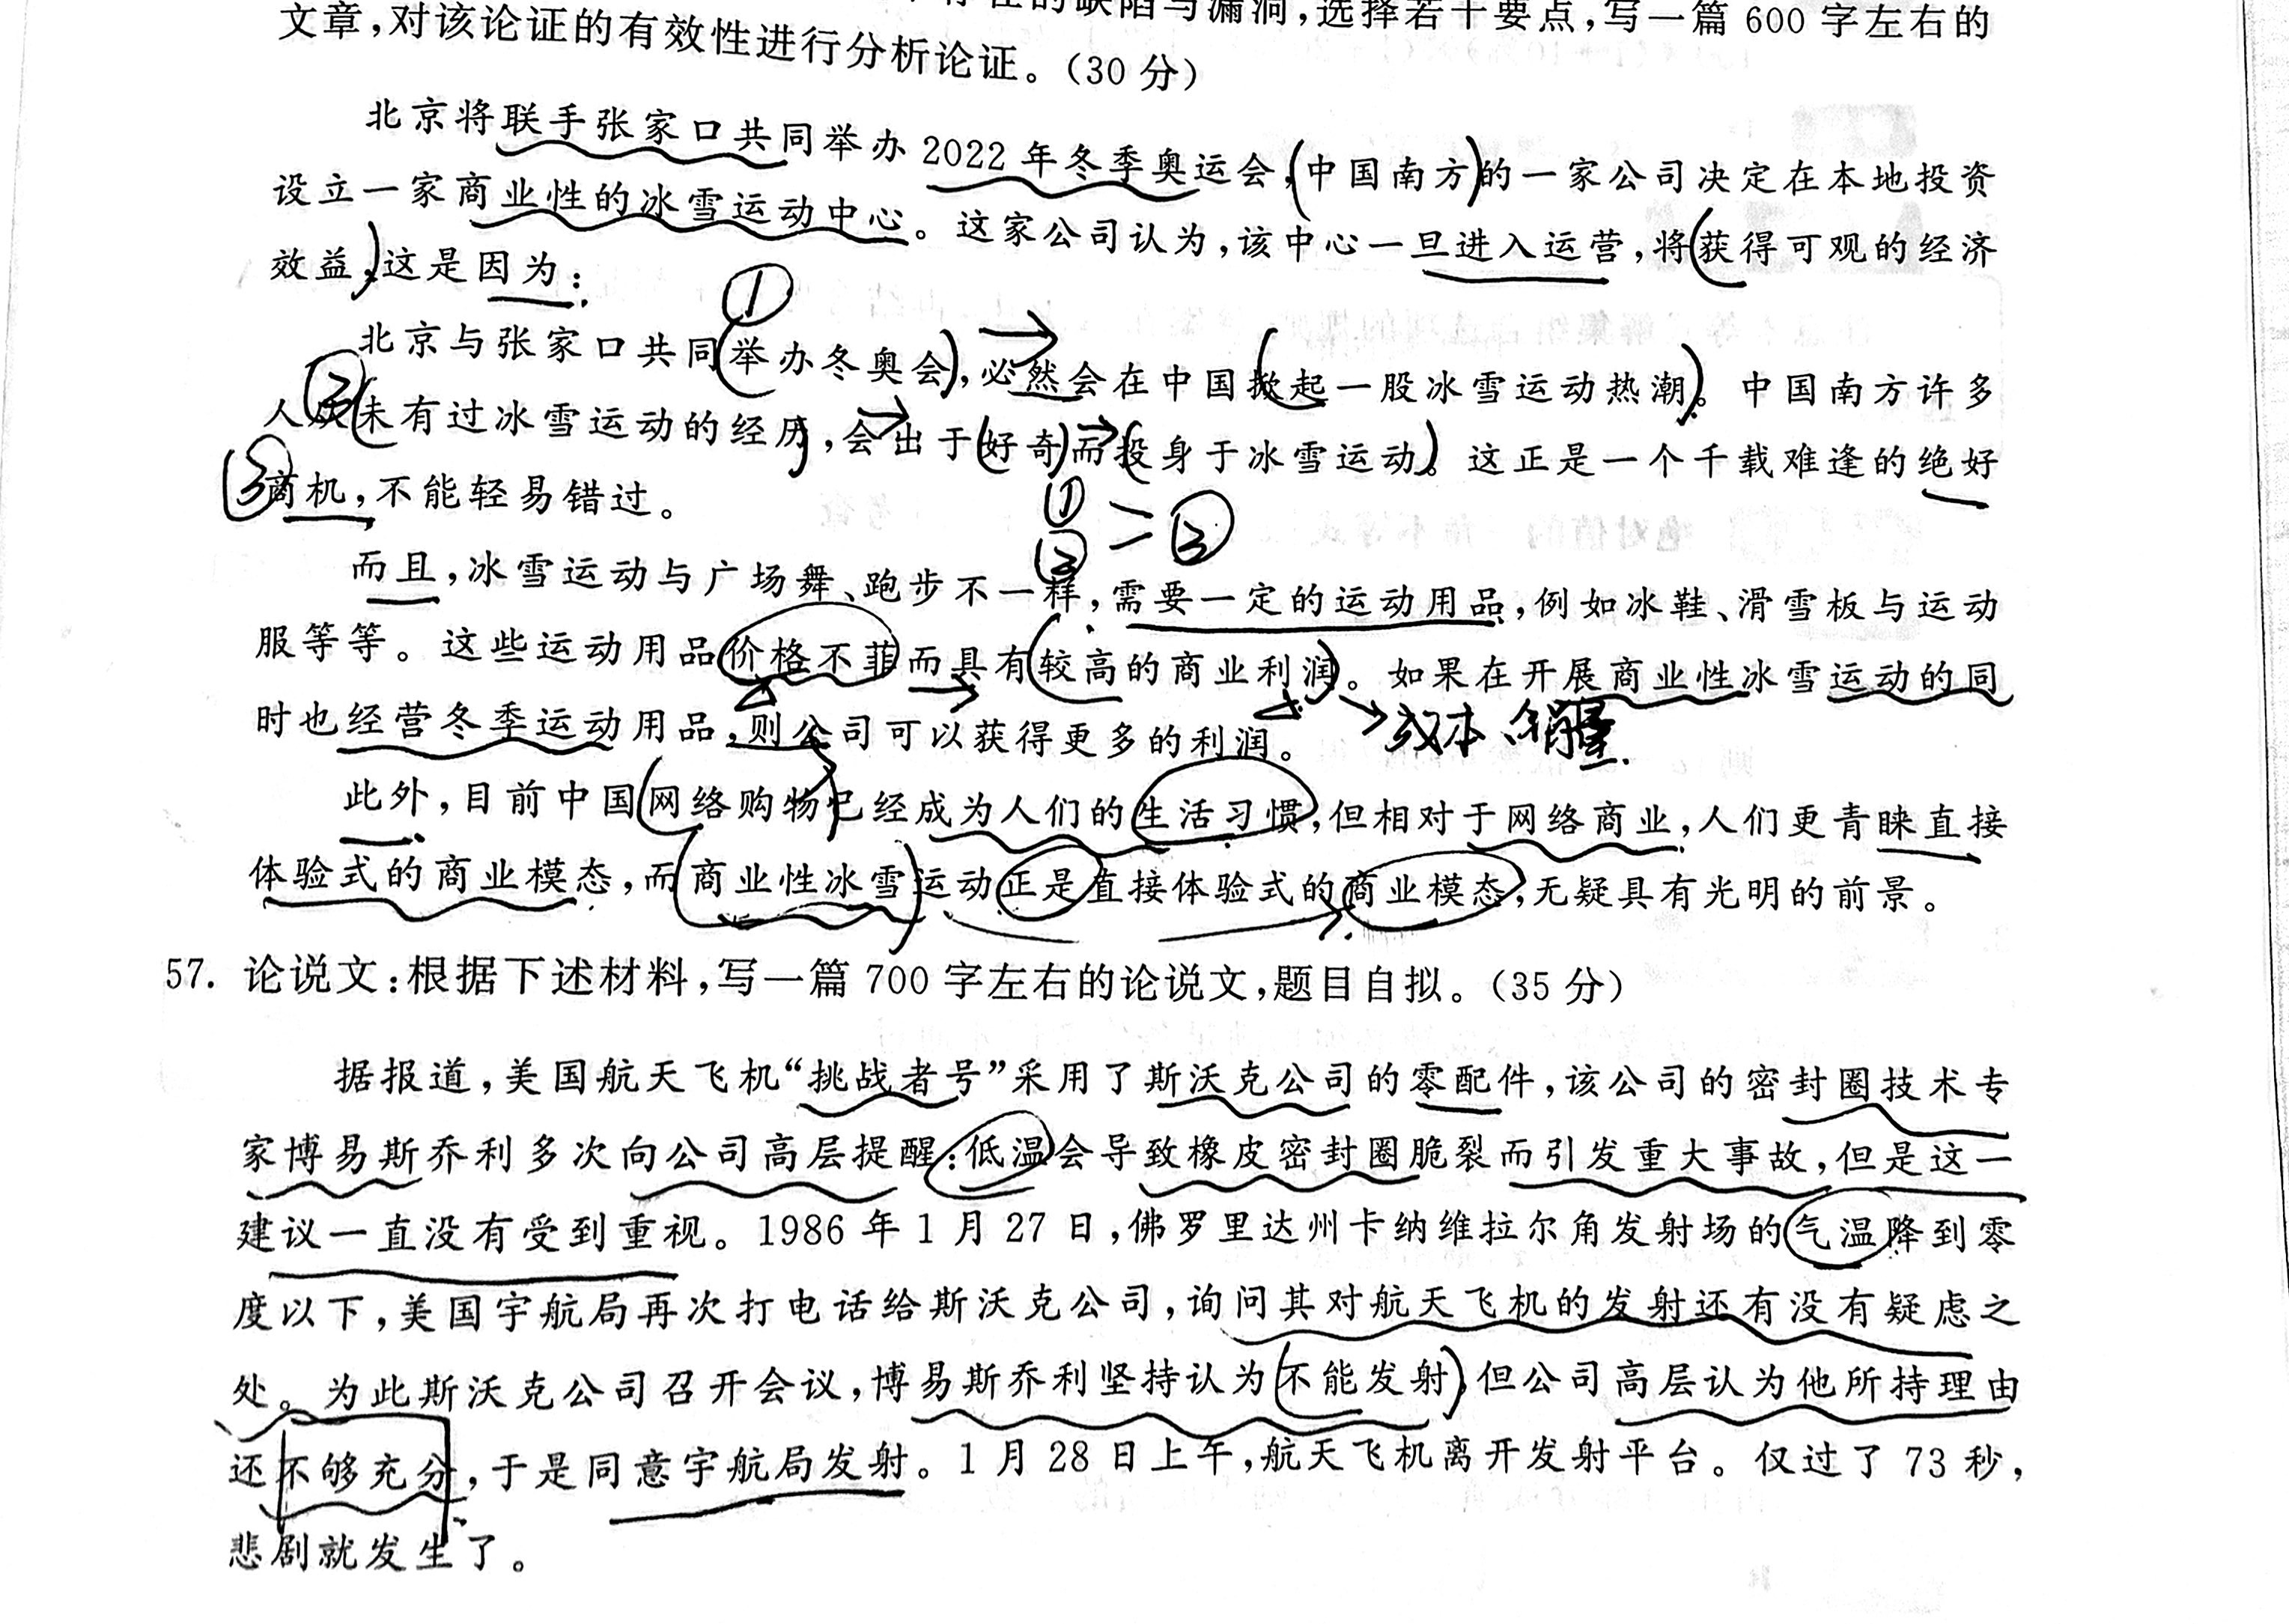 的缺陷与漏洞,选择若干要点,写一篇 600 字左右的
文章,对该论证的有效性进行分析论证。(30 分)
北京将联手张家口共同举办 2022 年冬季奥运会,中国南方的一家公司决定在本地投资
设立一家商业性的冰雪运动中心。这家公司认为,该中心一旦进入运营,将获得可观的经济
效益,这是因为:
①
北京与张家口共同举办冬奥会,必然会在中国掀起一股冰雪运动热潮。中国南方许多
②
人从未有过冰雪运动的经历,会出于好奇而投身于冰雪运动。这正是一个千载难逢的绝好
③
商机,不能轻易错过。
①
② ③
而且,冰雪运动与广场舞、跑步不一样,需要一定的运动用品,例如冰鞋、滑雪板与运动
服等等。这些运动用品价格不菲而具有较高的商业利润。如果在开展商业性冰雪运动的同
时也经营冬季运动用品,则公司可以获得更多的利润。
成本、销量
此外,目前中国网络购物已经成为人们的生活习惯,但相对于网络商业,人们更青睐直接
体验式的商业模态,而商业性冰雪运动正是直接体验式的商业模态,无疑具有光明的前景。
57. 论说文:根据下述材料,写一篇 700 字左右的论说文,题目自拟。(35 分)
据报道,美国航天飞机“挑战者号”采用了斯沃克公司的零配件,该公司的密封圈技术专
家博易斯乔利多次向公司高层提醒:低温会导致橡皮密封圈脆裂而引发重大事故,但是这一
建议一直没有受到重视。1986 年 1 月 27 日,佛罗里达州卡纳维拉尔角发射场的气温降到零
度以下,美国宇航局再次打电话给斯沃克公司,询问其对航天飞机的发射还有没有疑虑之
处。为此斯沃克公司召开会议,博易斯乔利坚持认为不能发射,但公司高层认为他所持理由
还不够充分,于是同意宇航局发射。1 月 28 日上午,航天飞机离开发射平台。仅过了 73 秒,
悲剧就发生了。